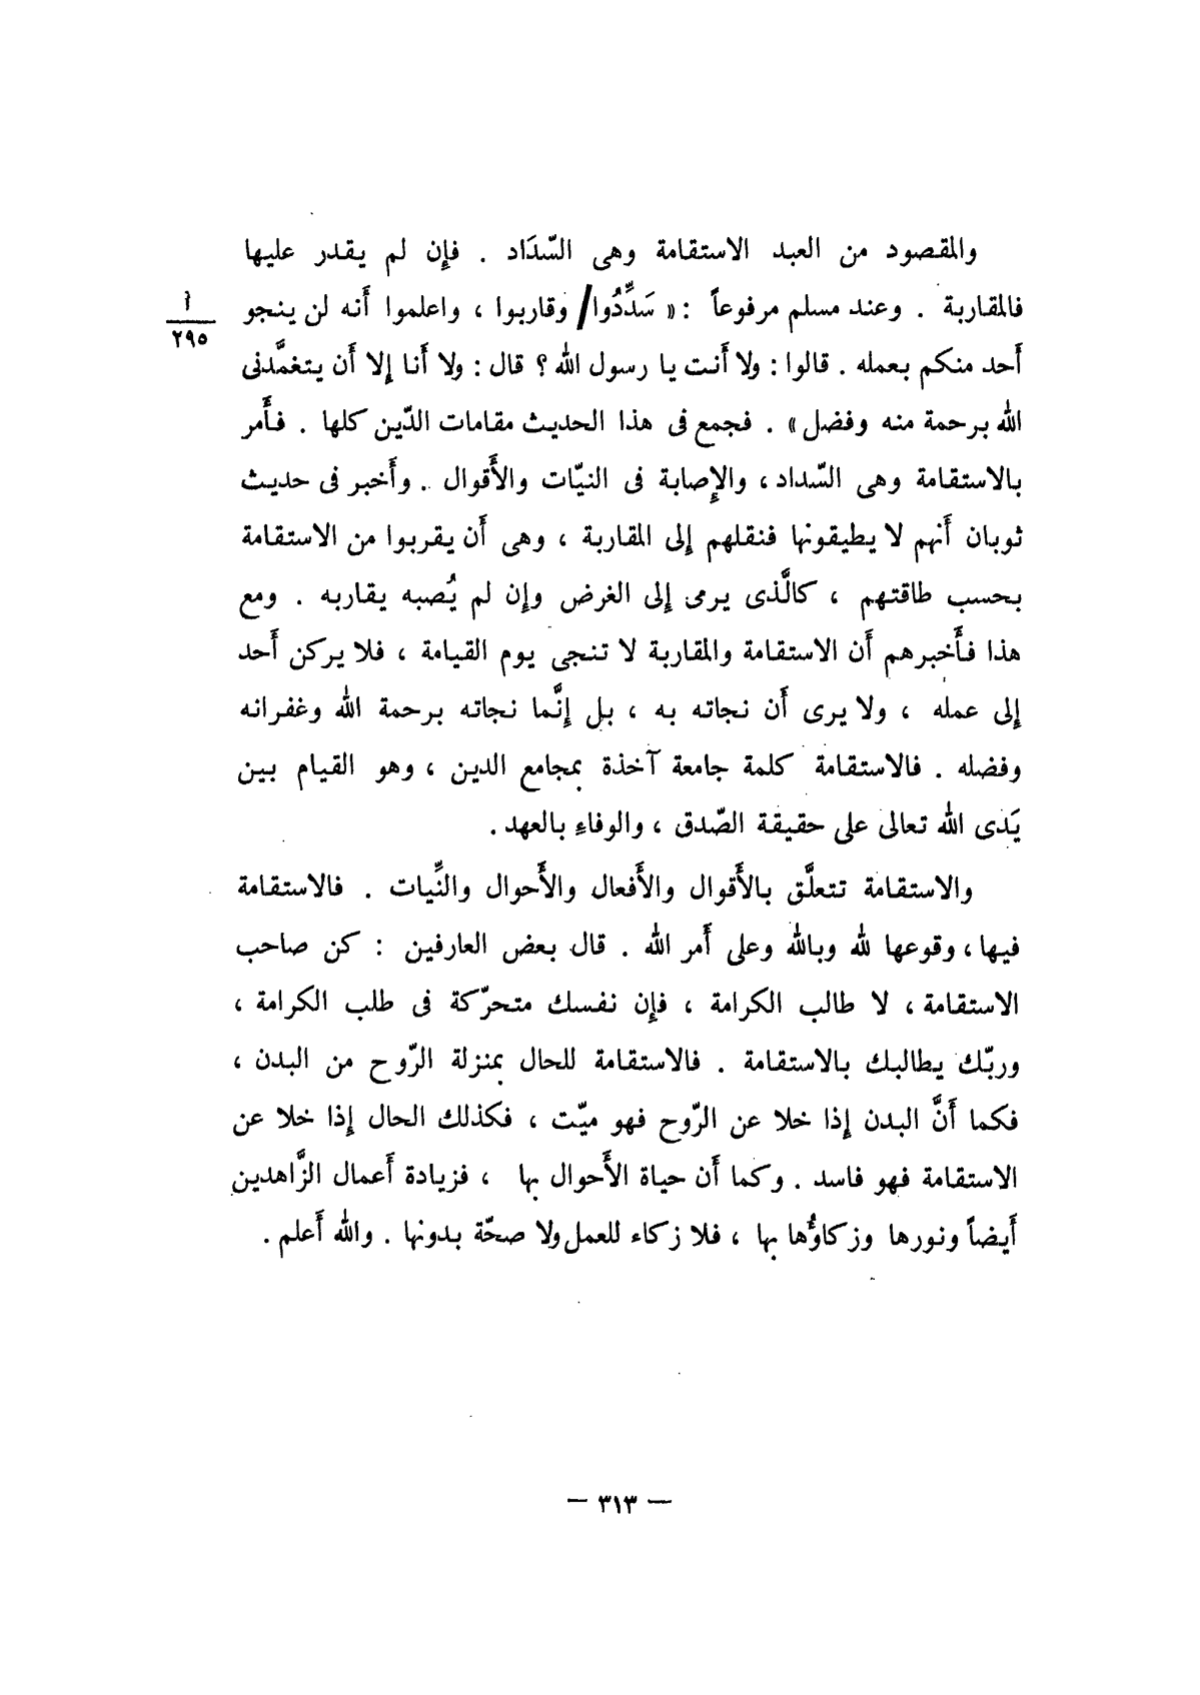 والمقصود من العبد الاستقامة وهى السّدَاد . فإِن لم يقدر عليها
فالمقاربة . وعند مسلم مرفوعاً : « سَدِّدُوا/ وقاربوا ، واعلموا أَنه لن ينجو
أ
٢٩٥
أَحد منكم بعمله . قالوا : ولا أَنت يا رسول الله ؟ قال : ولا أَنا إِلا أَن يتغمَّدنى
الله برحمة منه وفضل » . فجمع فى هذا الحديث مقامات الدّين كلها . فأَمر
بالاستقامة وهى السّداد ، والإِصابة فى النيّات والأَقوال . وأَخبر فى حديث
ثوبان أَنهم لا يطيقونها فنقلهم إِلى المقاربة ، وهى أَن يقربوا من الاستقامة
بحسب طاقتهم ، كالَّذى يرمى إِلى الغرض وإِن لم يُصبه يقاربه . ومع
هذا فأَخبرهم أَن الاستقامة والمقاربة لا تنجى يوم القيامة ، فلا يركن أَحد
إِلى عمله ، ولا يرى أَن نجاته به ، بل إِنَّما نجاته برحمة الله وغفرانه
وفضله . فالاستقامة كلمة جامعة آخذة بمجامع الدين ، وهو القيام بين
يَدى الله تعالى على حقيقة الصّدق ، والوفاءِ بالعهد .
والاستقامة تتعلَّق بالأَقوال والأَفعال والأَحوال والنِّيات . فالاستقامة
فيها ، وقوعها لله وبالله وعلى أَمر الله . قال بعض العارفين : كن صاحب
الاستقامة ، لا طالب الكرامة ، فإِن نفسك متحرّكة فى طلب الكرامة ،
وربّك يطالبك بالاستقامة . فالاستقامة للحال بمنزلة الرّوح من البدن ،
فكما أَنَّ البدن إِذا خلا عن الرّوح فهو ميّت ، فكذلك الحال إِذا خلا عن
الاستقامة فهو فاسد . وكما أَن حياة الأَحوال بها ، فزيادة أَعمال الزَّاهدين
أَيضاً ونورها وزكاؤُها بها ، فلا زكاء للعمل ولا صحّة بدونها . والله أَعلم .
— ٣١٣ —